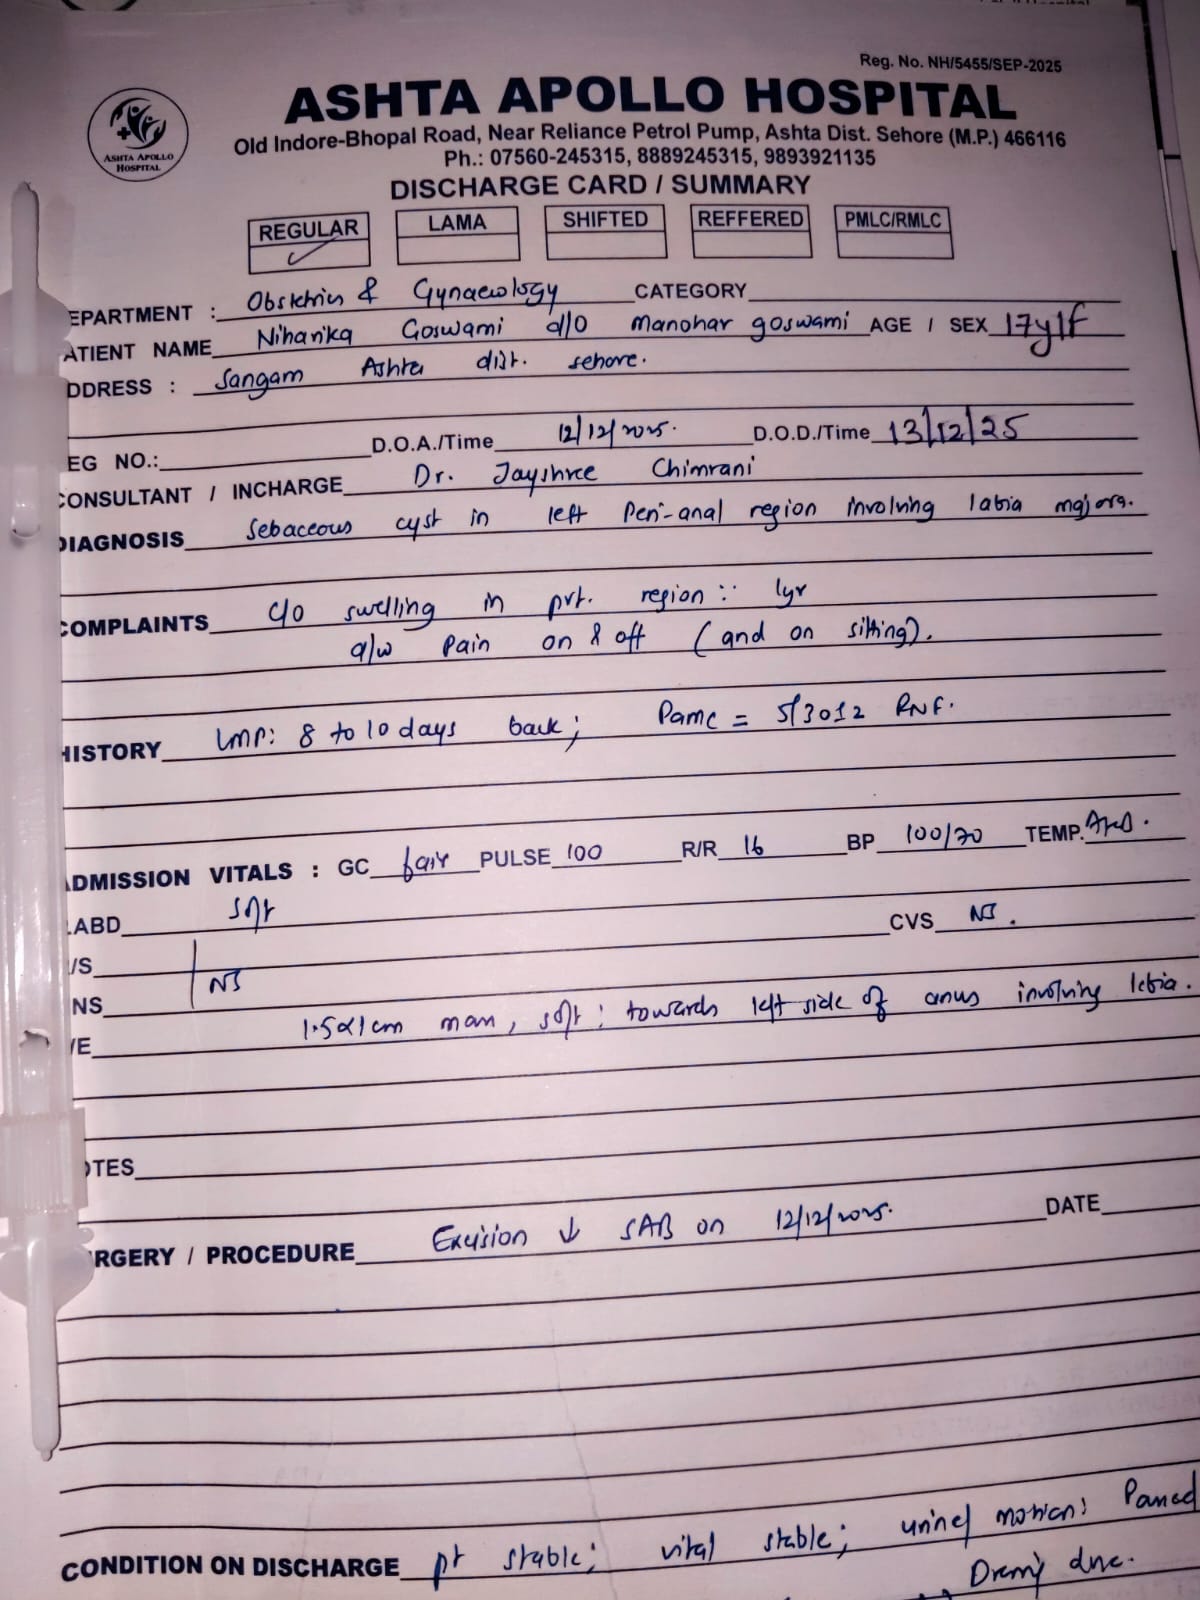 Reg. No. NH/5455/SEP-2025
ASHTA APOLLO HOSPITAL
ASHTA APOLLO HOSPITAL
Old Indore-Bhopal Road, Near Reliance Petrol Pump, Ashta Dist. Sehore (M.P.) 466116
Ph.: 07560-245315, 8889245315, 9893921135
DISCHARGE CARD / SUMMARY
REGULAR ✓ LAMA SHIFTED REFFERED PMLC/RMLC
EPARTMENT : Obstetrics & Gynaecology CATEGORY
ATIENT NAME Niharika Goswami d/o Manohar goswami AGE / SEX 17y/F
DDRESS : Sangam Ashta dist. sehore.
EG NO.: D.O.A./Time 12/12/2025. D.O.D./Time 13/12/25
CONSULTANT / INCHARGE Dr. Jayshree Chimrani
DIAGNOSIS Sebaceous cyst in left Peri-anal region involving labia majora.
COMPLAINTS c/o swelling in pvt. region :: 1yr
a/w pain on & off (and on sitting).
HISTORY LMP: 8 to 10 days back; PAMC = 5/30±2 RNF.
DMISSION VITALS : GC fair PULSE 100 R/R 16 BP 100/70 TEMP.
ABD soft
/S CVS
NS
/E 1.5x1cm mass, soft: towards left side of anus involving labia.
OTES
RGERY / PROCEDURE Excision ↓ SAB on 12/12/2025. DATE
CONDITION ON DISCHARGE pt stable; vital stable; urine/ motion: Passed
done.